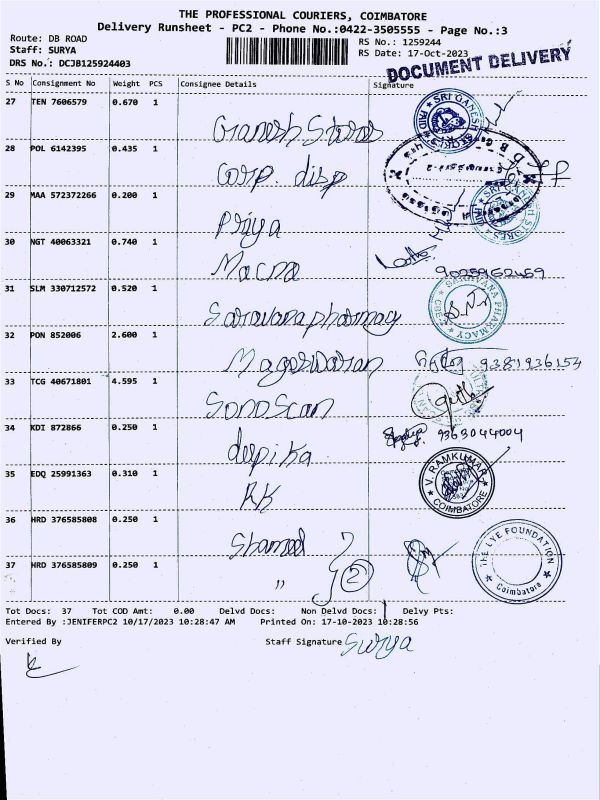 THE PROFESSIONAL COURIERS, COIMBATORE
Delivery Runsheet - PC2 - Phone No.:0422-3505555 - Page No.:3
Route: DB ROAD
Staff: SURYA
DRS No.: DCJB125924403
RS No.: 1259244
RS Date: 17-Oct-2023
DOCUMENT DELIVERY
S No Consignment No Weight PCS Consignee Details Signature
27 TEN 7606579 0.670 1
Ganesh Stores
SRI GANESH STORES
28 POL 6142395 0.435 1
Corp disp
29 MAA 572372266 0.200 1
Priya
30 NGT 40063321 0.740 1
Macna
31 SLM 330712572 0.520 1
Saravana pharmacy
SARAVANA PHARMACY
32 PON 852006 2.600 1
Mageswaran 9381936154
33 TCG 40671801 4.595 1
SonoScan
34 KDI 872866 0.250 1
deepika 9363044004
35 EDQ 25991363 0.310 1
RK
V. RAMKUMAR
COIMBATORE
36 HRD 376585808 0.250 1
THE LYE FOUNDATION
Coimbatore
37 HRD 376585809 0.250 1
" 2
Tot Docs: 37 Tot COD Amt: 0.00 Delvd Docs: Non Delvd Docs: Delvy Pts:
Entered By :JENIFERPC2 10/17/2023 10:28:47 AM Printed On: 17-10-2023 10:28:56
Verified By Staff Signature Surya